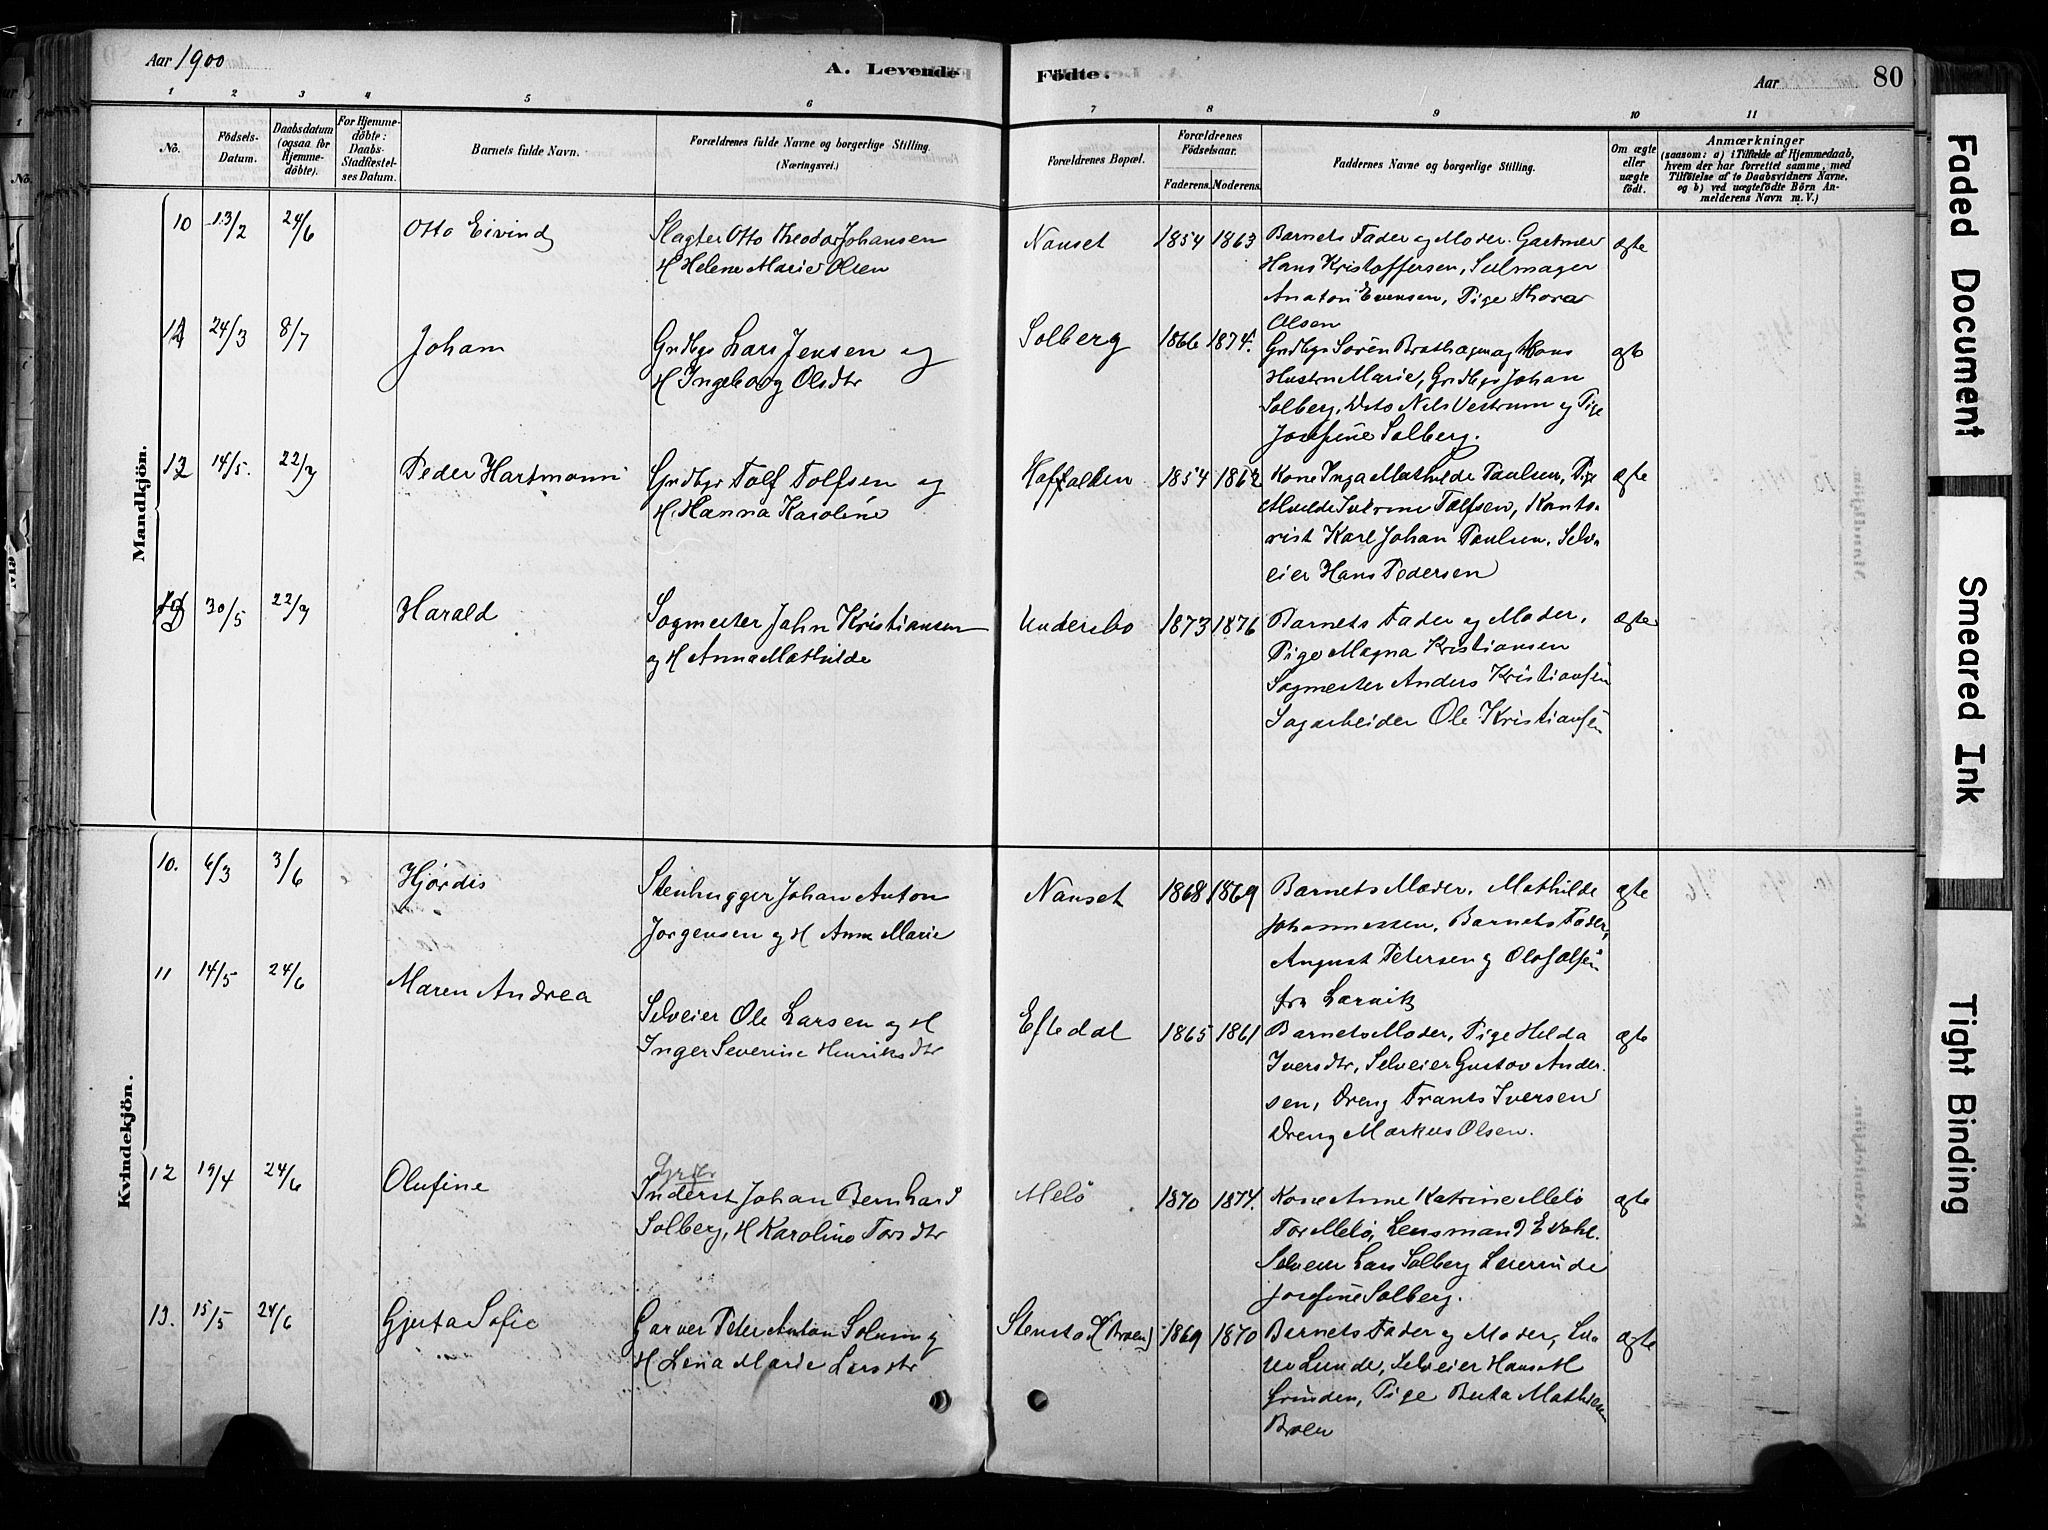 Aar 1900
A. Levende
Födte.
Aar
80
1 2 3 4 5 6 7 8 9 10 11
No.
Födsels-Datum.
Daabsdatum (ogsaa for Hjemmedöbte).
For Hjemmedöbte: Daabs-Stadfæstelses Datum.
Barnets fulde Navn.
Forældrenes fulde Navne og borgerlige Stilling. (Næringsvei.)
Forældrenes Bopæl.
Forældrenes Födselsaar.
Faderens. Moderens.
Faddernes Navne og borgerlige Stilling.
Om ægte eller uægte födt.
Anmærkninger
(saasom: a) i Tilfælde af Hjemmedaab, hvem der har forrettet samme, med Tilföielse af to Daabsvidners Navne, og b) ved uægtefödte Börn Anmelderens Navn m. V.)
Mandkjön.
10 13/2 24/6 Otto Eivind
Slagter Otto Theodor Johansen
H Helene Marie Olsen
Nanset 1854 1863
Barnets Fader og Moder. Gartner
Hans Kristoffersen, Selmager
Anaton Evensen, Pige Thora
Olsen
ægte
11 24/3 8/7 Johan
Grdbgr Lars Jensen og
H Ingeborg Olsdtr
Solberg 1866 1874.
Grdbgr Søren Brathagen og Hans
Hustru Marie, Grdbgr Johan
Solberg, Dito Nils Vestrum og Pige
Josefine Solberg.
ægte
12 14/5. 22/7 Peder Hartmann
Grdbgr Tolf Tolfsen og
H. Hanna Karoline
1854 1862
Kone Inga Mathilde Paulsen, Pige
Tolfsen, Kontorist Karl Johan Paulsen, Selveier Hans Pedersen
ægte
13 30/5 22/7 Harald
Sagmester John Kristiansen
og H Anna Mathilde
Undersbo 1873 1876
Barnets Fader og Moder,
Pige Magna Kristiansen
Sagmester Anders Kristiansen
Sagarbeider Ole Kristiansen
ægte
Kvindekjön.
10. 6/3 3/6 Hjørdis
Stenhugger Johan Anton
Jørgensen og H Anna Marie
Nanset 1868 1869
Barnets Moder, Mathilde
Johannessen, Barnets Fader,
August Petersen og Olof Olsen
fra Larvik
ægte
11 14/5 24/6 Maren Andrea
Selveier Ole Larsen og H
Inger Severine Henriksdtr
Eftedal 1865 1861
Barnets Moder, Pige Helda
Iversdtr, Selveier Gustav Andersen, Dreng Frants Iversen
Dreng Markus Olsen.
ægte
12 19/4 24/6 Olufine
Inderst Johan Bernhard
Solberg, H Karoline Torsdtr
Melø 1870 1874.
Kone Anne Katrine Melø
Tor Melø, Lensmand
Selveier Lars Solberg
Josefine Solberg.
ægte
13. 15/5 24/6 Gjerta Sofie
Garver Peter Anton Solum og
H Lena Marie Larsdtr
Stensto (Broen) 1869 1870
Barnets Fader og Moder,
Lunde, Selveier Hans H
Grinden, Pige Berta Mathisen
Broen
ægte
Faded Document
Smeared Ink
Tight Binding